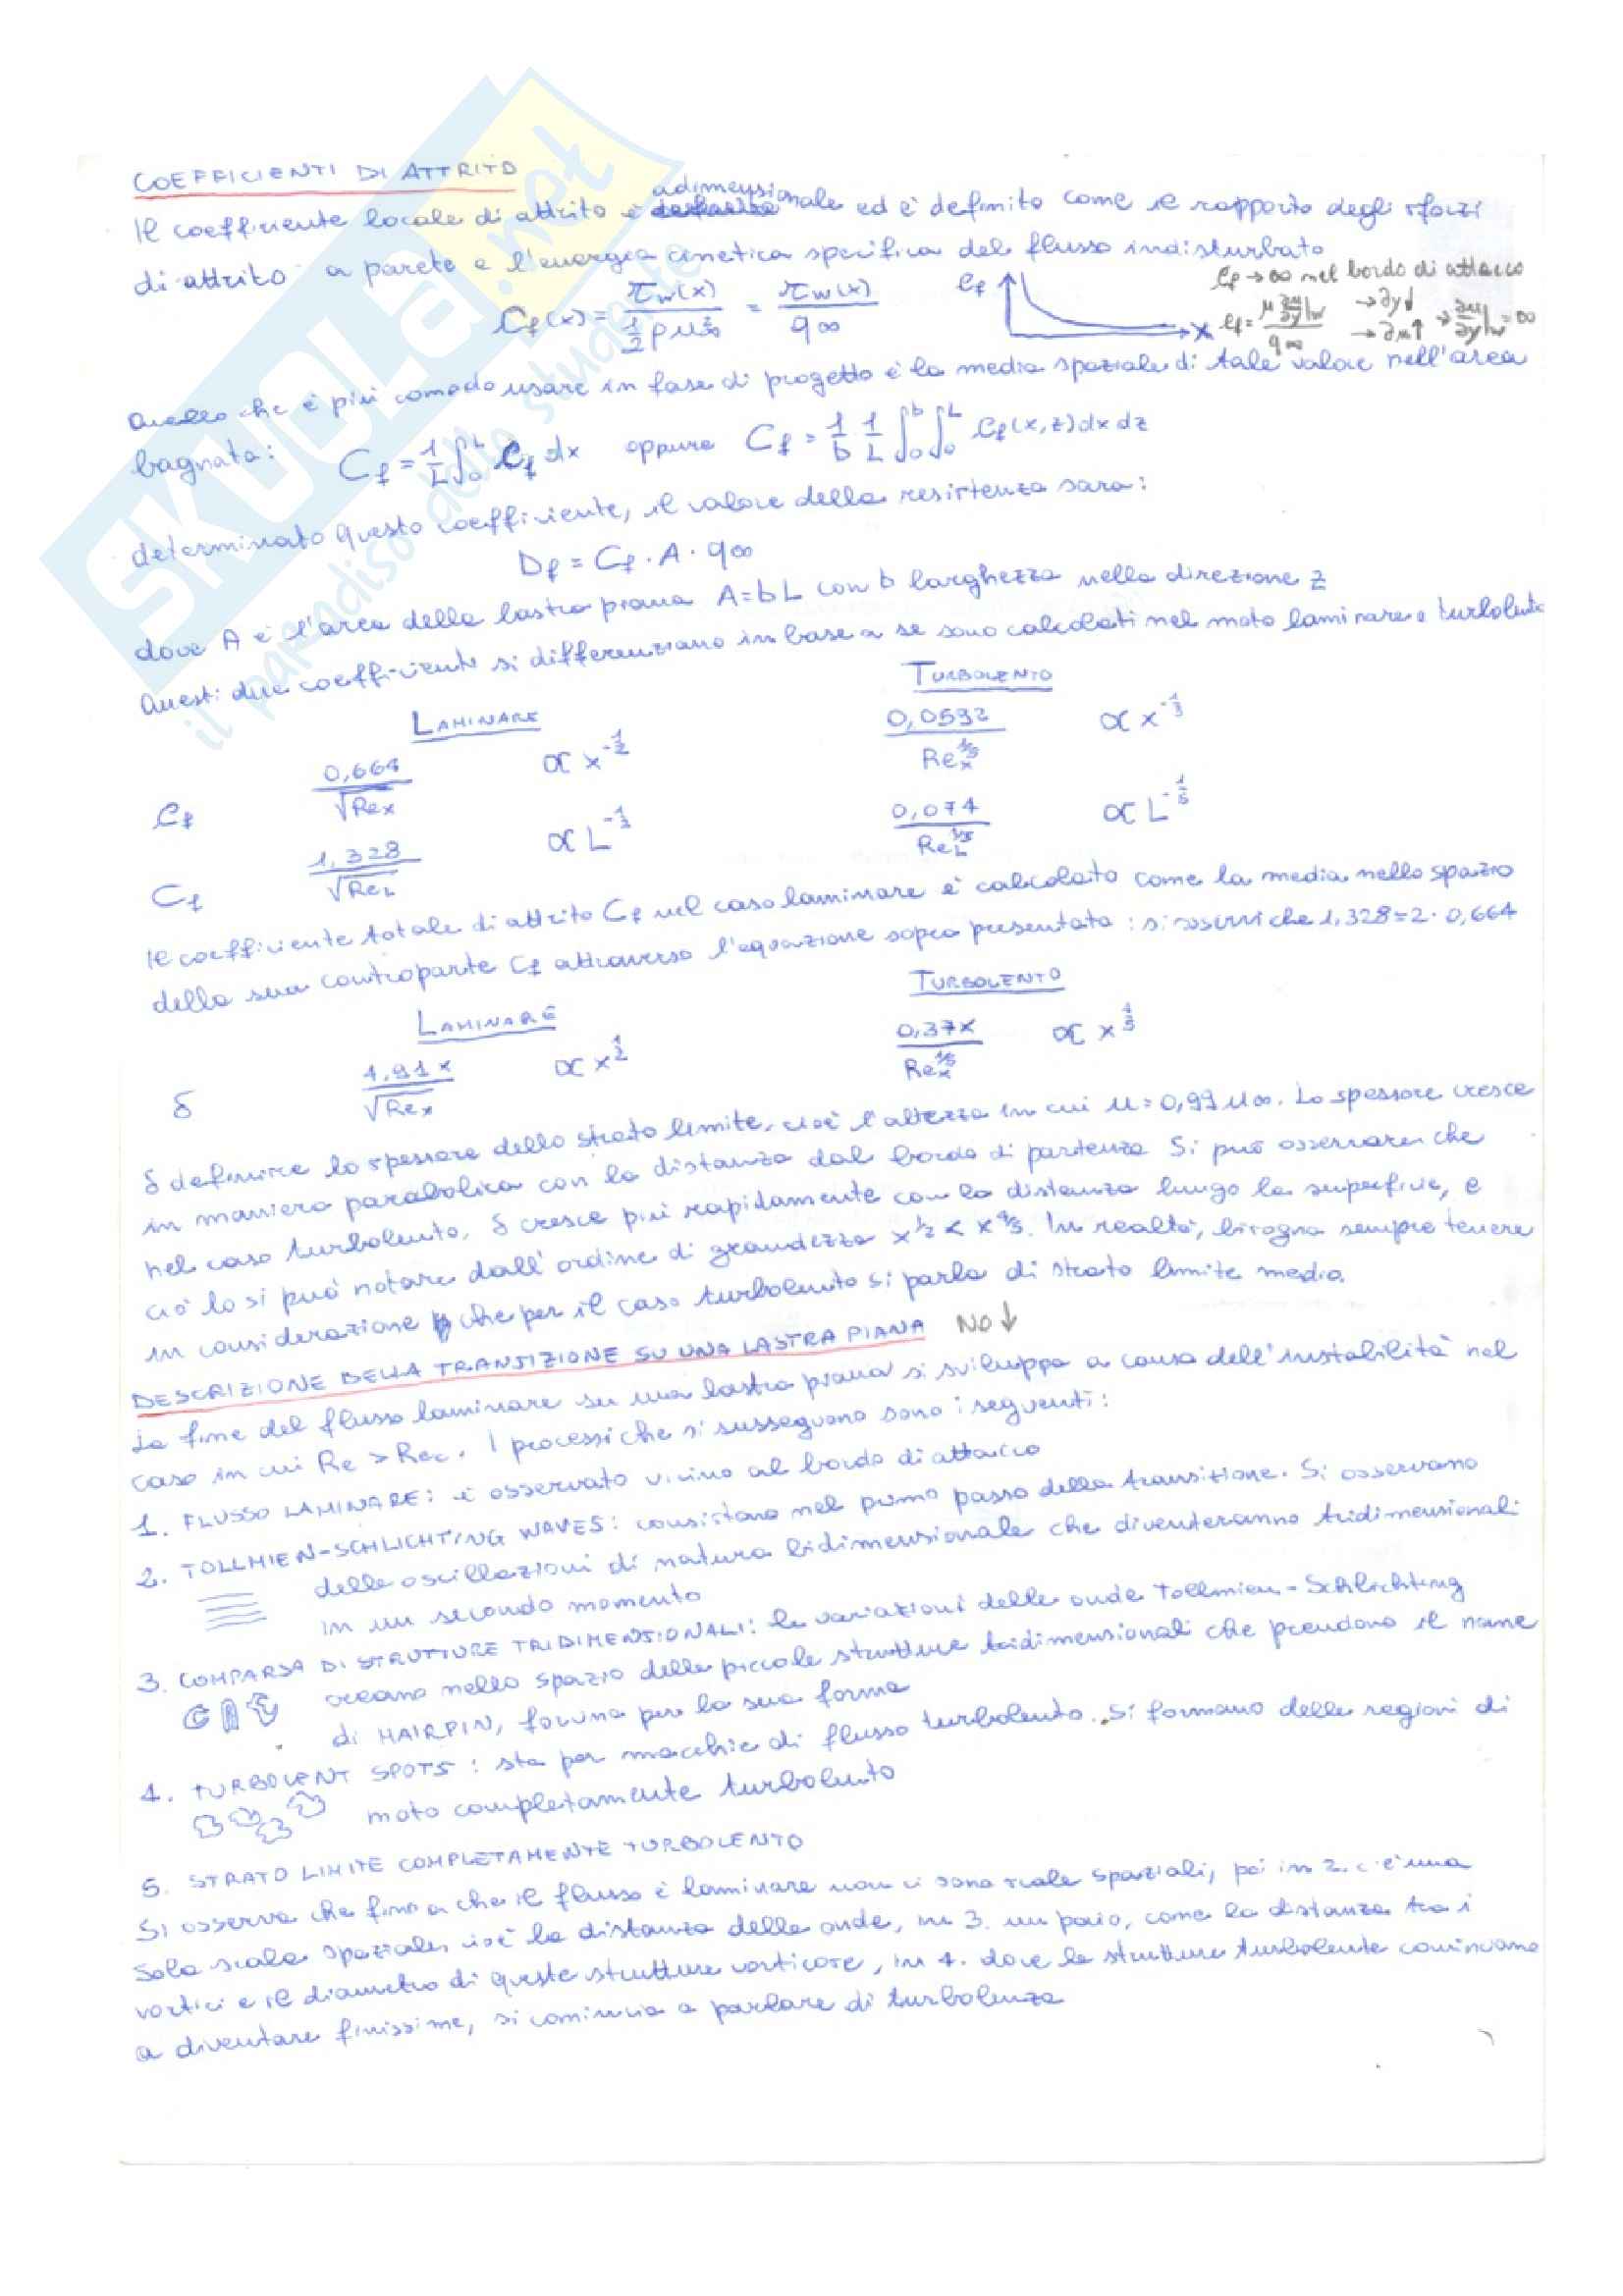 COEFFICIENTI DI ATTRITO
Il coefficiente locale di attrito è adimensionale ed è definito come il rapporto degli sforzi
di attrito a parete e l'energia cinetica specifica del flusso indisturbato
Cf(x) = τw(x) / ½ρu∞² = τw(x) / q∞
Cf
x
Cf → ∞ nel bordo di attacco
Cf = μ ∂u/∂y|w / q∞ → ∂y↓ → ∂u↑ → ∂u/∂y|w = ∞
Quello che è più comodo usare in fase di progetto è la media spaziale di tale valore nell'area
bagnata: Cf = 1/L ∫₀ᴸ Cf dx oppure Cf = 1/b 1/L ∫₀ᵇ∫₀ᴸ Cf(x,z)dxdz
determinato questo coefficiente, il valore della resistenza sarà:
Df = Cf · A · q∞
dove A è l'area della lastra piana A=bL con b larghezza nella direzione z
Questi due coefficienti si differenziano in base a se sono calcolati nel moto laminare o turbolento
LAMINARE TURBOLENTO
Cf 0,664/√Rex ∝ x^-1/2 0,0592/Rex^1/5 ∝ x^-1/5
Cf 1,328/√ReL ∝ L^-1/2 0,074/ReL^1/5 ∝ L^-1/5
Il coefficiente totale di attrito Cf nel caso laminare è calcolato come la media nello spazio
della sua controparte Cf attraverso l'equazione sopra presentata: si osservi che 1,328=2·0,664
LAMINARE TURBOLENTO
δ 4,91x/√Rex ∝ x^1/2 0,37x/Rex^1/5 ∝ x^4/5
δ definisce lo spessore dello strato limite, cioè l'altezza in cui u=0,99u∞. Lo spessore cresce
in maniera parabolica con la distanza dal bordo di partenza. Si può osservare che
nel caso turbolento, δ cresce più rapidamente con la distanza lungo la superficie, e
ciò lo si può notare dall'ordine di grandezza x^1/2 < x^4/5. In realtà, bisogna sempre tenere
in considerazione che per il caso turbolento si parla di strato limite medio.
DESCRIZIONE DELLA TRANSIZIONE SU UNA LASTRA PIANA NO↓
La fine del flusso laminare su una lastra piana si sviluppa a causa dell'instabilità nel
caso in cui Re > Rec. I processi che si susseguono sono i seguenti:
1. FLUSSO LAMINARE: è osservato vicino al bordo di attacco
2. TOLLMIEN-SCHLICHTING WAVES: consistono nel primo passo della transizione. Si osservano
delle oscillazioni di natura bidimensionale che diventeranno tridimensionali
in un secondo momento
3. COMPARSA DI STRUTTURE TRIDIMENSIONALI: le variazioni delle onde Tollmien-Schlichting
creano nello spazio delle piccole strutture tridimensionali che prendono il nome
di HAIRPIN, forcina per la sua forma
4. TURBOLENT SPOTS: sta per macchie di flusso turbolento. Si formano delle regioni di
moto completamente turbolento
5. STRATO LIMITE COMPLETAMENTE TURBOLENTO
Si osserva che fino a che il flusso è laminare non ci sono scale spaziali, poi in 2. c'è una
sola scala spaziale, cioè la distanza delle onde, in 3. un paio, come la distanza tra i
vortici e il diametro di queste strutture vorticose, in 4. dove le strutture turbolente cominciano
a diventare finissime, si comincia a parlare di turbolenza
SKUOLA.net
il paradiso dello studente